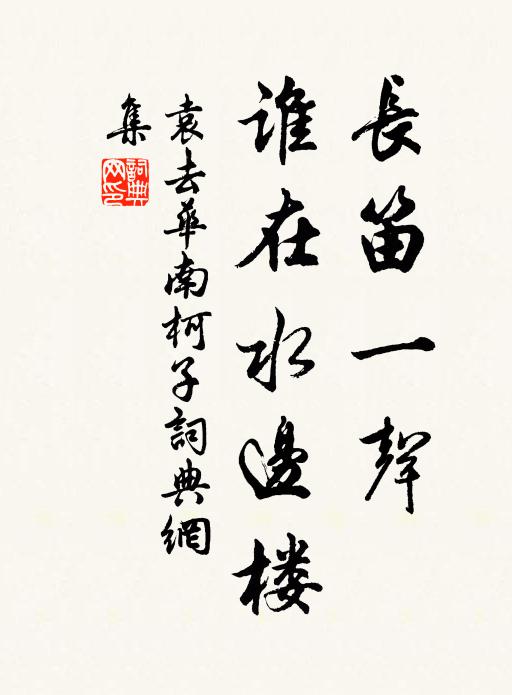 長笛一聲
誰在水邊楼
袁去華南柯子詞典網
集
詞典
网印